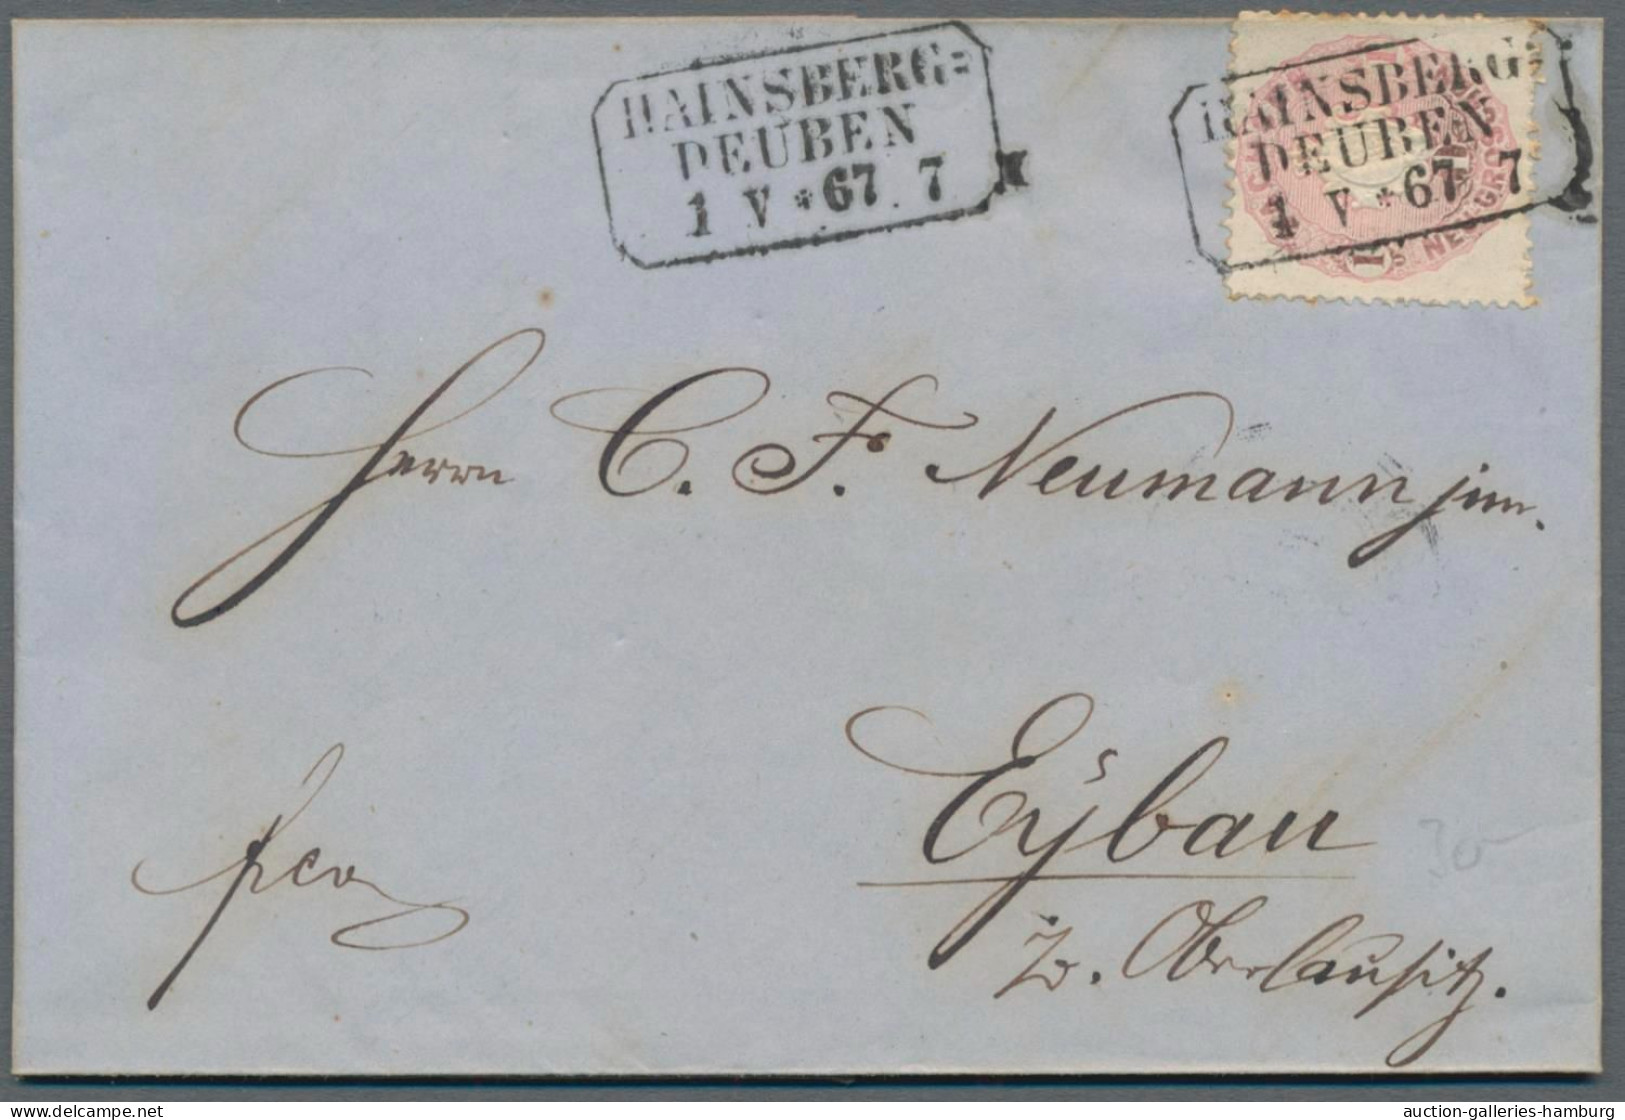 HAINSBERG=
DEUBEN
1 V * 67 7
HAINSBERG=
DEUBEN
1 V * 67 7
NEU-GROSCHEN
Herrn C. F. Neumann jun.
Eybau
fco
Oberlausitz.
30-
www.delcampe.net
auction-galleries-hamburg